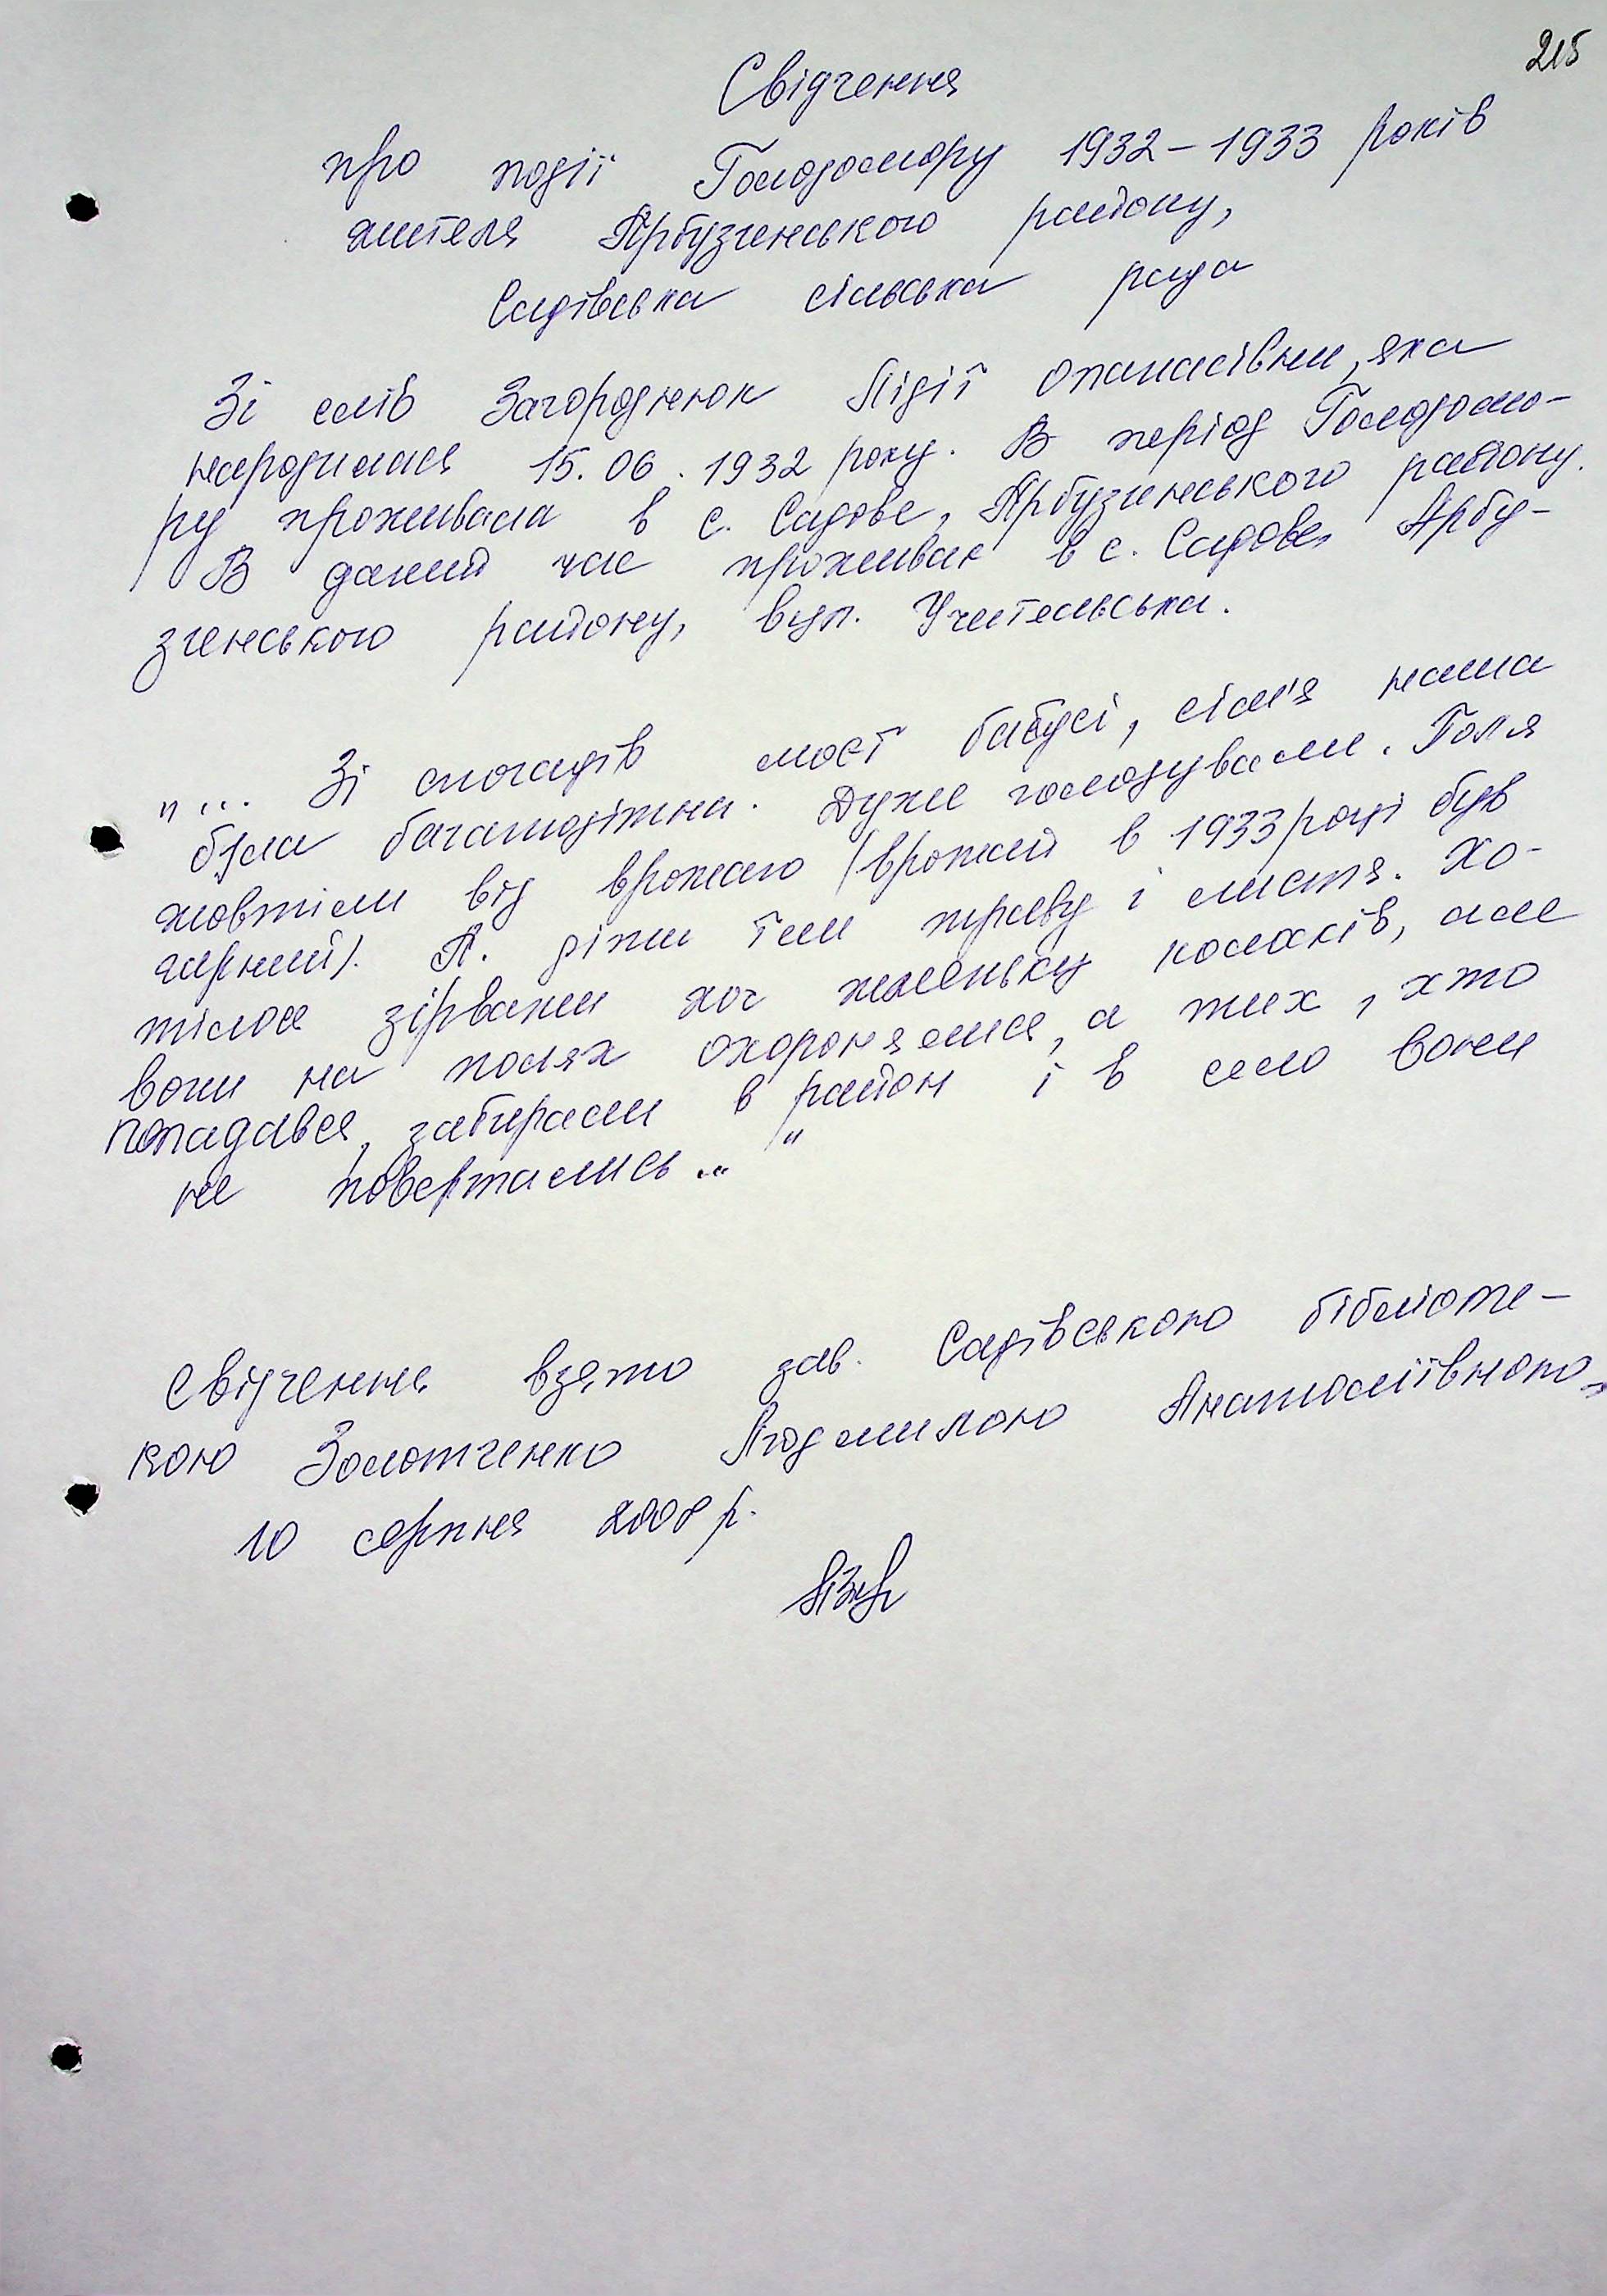 215
Свідчення
про події Голодомору 1932-1933 років
жителя Арбузинського району,
Садівська сільська рада
Зі слів Загороднюк Лідії Опанасівни, яка
народилася 15.06.1932 року. В період Голодомо-
ру проживала в с. Садове, Арбузинського району.
В даний час проживає в с. Садове, Арбу-
зинського району, вул. Учительська.
"... Зі спогадів моєї бабусі, сім'я наша
була багатодітна. Дуже голодували. Поля
жовтіли від врожаю (врожай в 1933 році був
гарний). А діти їли траву і листя. Хо-
тілося зірвати хоч жменьку колосків, але
вони на полях охоронялися, а тих, хто
попадався, забирали в район і в село вони
не повертались..."
Свідчення взято зав. Садівською бібліоте-
кою Золотченко Людмилою Анатоліївною.
10 серпня 2008 р.